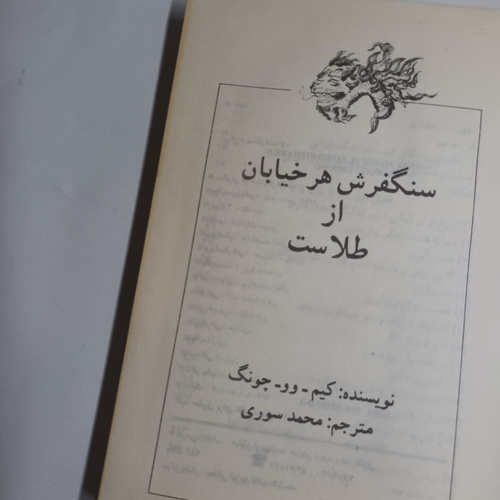 سنگفرش هر خیابان
از
طلاست
نویسنده: کیم ـ وو ـ چونگ
مترجم: محمد سوری